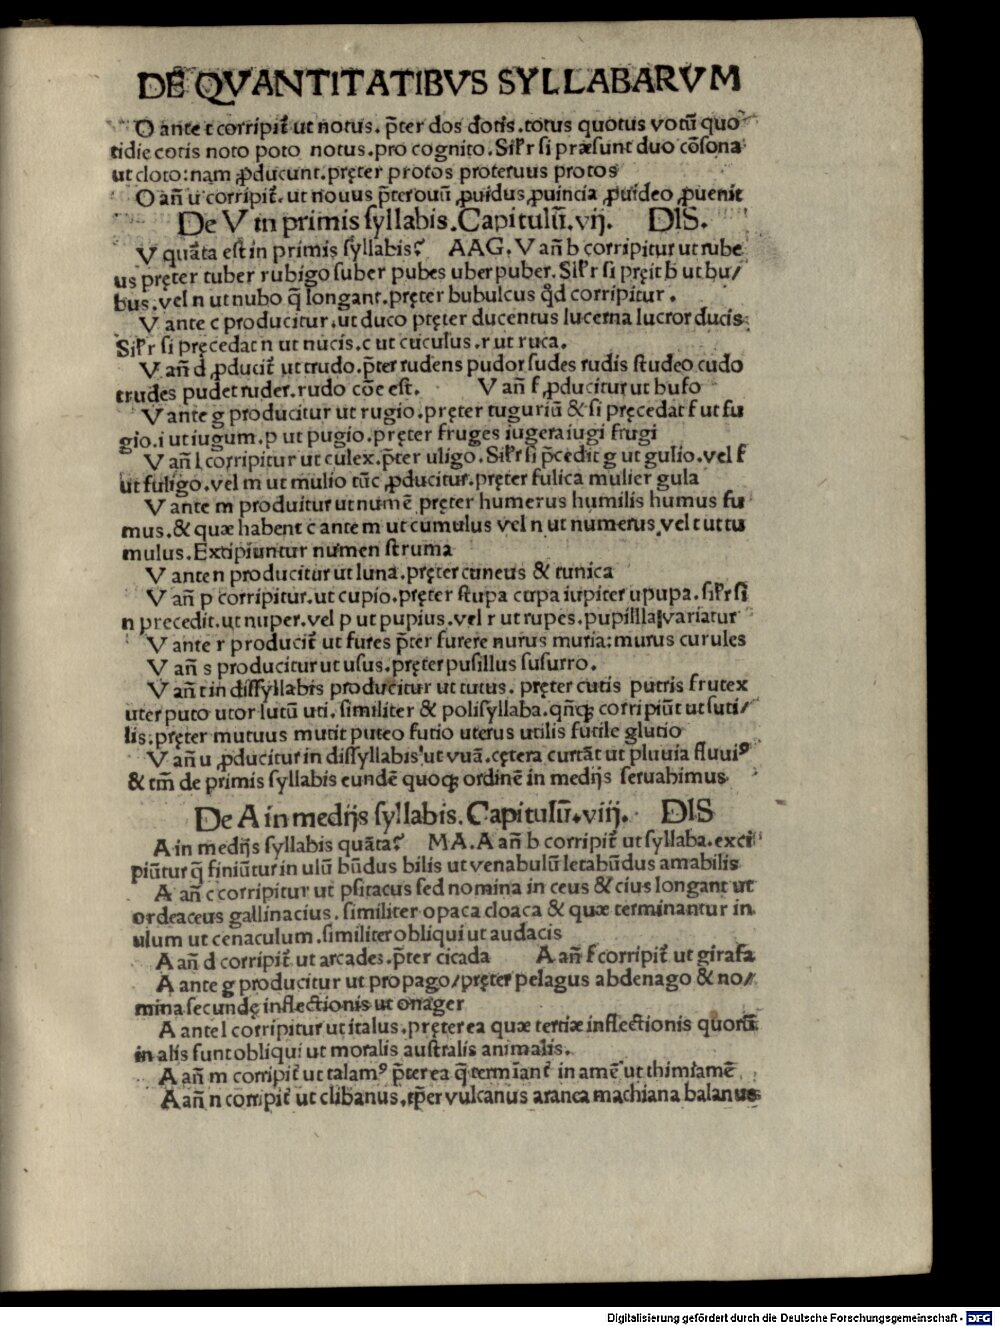 DE QVANTITATIBVS SYLLABARVM
O ante t corripit᷑ ut notus. p̃ter dos dotis. totus quotus votũ quo
tidie cotis noto poto notus. pro cognito. Sil̃r si præsunt duo cõsona
ut cloto: nam ꝓducunt. pręter protos proteruus protos
O añ u corripit᷑. ut nouus p̃ter ouũ ꝓuidus ꝓuincia ꝓuideo ꝓuenit
De V in primis syllabis. Capitulũ. vij. DIS.
V quãta est in primis syllabis? AAG. V añ b corripitur ut rube
us pręter tuber rubigo suber pubes uber puber. Sil̃r si pręit b ut bu/
bus. vel n ut nubo q̃ longant. pręter bubulcus qđ corripitur.
V ante c producitur. ut duco pręter ducentus lucerna lucror ducis
Sil̃r si pręcedat n ut nucis. c ut cuculus. r ut ruca.
V añ d ꝓducit᷑ ut trudo. p̃ter rudens pudor sudes rudis studeo cudo
trudes pudet ruder. rudo cõe est. V añ f ꝓducitur ut bufo
V ante g producitur ut rugio. pręter tuguriũ & si pręcedat f ut fu
gio. i ut iugum. p ut pugio. pręter fruges iugera iugi frugi
V añ l corripitur ut culex. p̃ter uligo. Sil̃r si p̃cedit g ut gulio. vel f
ut fuligo. vel m ut mulio tũc ꝓducitur. pręter fulica mulier gula
V ante m produitur ut numẽ pręter humerus humilis humus fu
mus. & quæ habent c ante m ut cumulus vel n ut numerus vel t ut tu
mulus. Excipiuntur numen struma
V ante n producitur ut luna. pręter cuneus & tunica
V añ p corripitur. ut cupio. pręter stupa cupa iupiter upupa. sil̃r si
n precedit. ut nuper. vel p ut pupius. vel r ut rupes. pupillla variatur
V ante r producit᷑ ut fures p̃ter furere nurus muria: murus curules
V añ s producitur ut usus. pręter pusillus susurro.
V añ t in dissyllabis producitur ut tutus. pręter cutis putris frutex
uter puto utor lutũ uti. similiter & polisyllaba. qñqꝫ corripiũt ut futi/
lis. pręter mutuus mutit puteo futio uterus utilis futile glutio
V añ u ꝓducitur in dissyllabis ut vuã. cętera curtãt ut pluuia fluuiꝰ
& tm̃ de primis syllabis eundẽ quoqꝫ ordinẽ in medijs seruabimus
De A in medijs syllabis. Capitulũ. viij. DIS
A in medijs syllabis quãta? MA. A añ b corripit᷑ ut syllaba. exci
piũtur q̃ finiũtur in ulũ bũdus bilis ut venabulũ letabũdus amabilis
A añ c corripitur ut psitacus sed nomina in ceus & cius longant ut
ordeaceus gallinacius. similiter opaca cloaca & quæ terminantur in
ulum ut cenaculum. similiter obliqui ut audacis
A añ d corripit᷑ ut arcades. p̃ter cicada A añ f corripit᷑ ut girafa
A ante g producitur ut propago/ pręter pelagus abdenago & no/
mina secundę inflectionis ut onager
A ante l corripitur ut italus. pręter ea quæ tertiæ inflectionis quorũ
in alis sunt obliqui ut moralis australis animalis.
A añ m corripit᷑ ut talamꝰ p̃ter ea q̃ termĩant᷑ in amẽ ut thimiamẽ
A añ n corripit᷑ ut clibanus. p̃ter vulcanus aranea machiana balanus
Digitalisierung gefördert durch die Deutsche Forschungsgemeinschaft - DFG